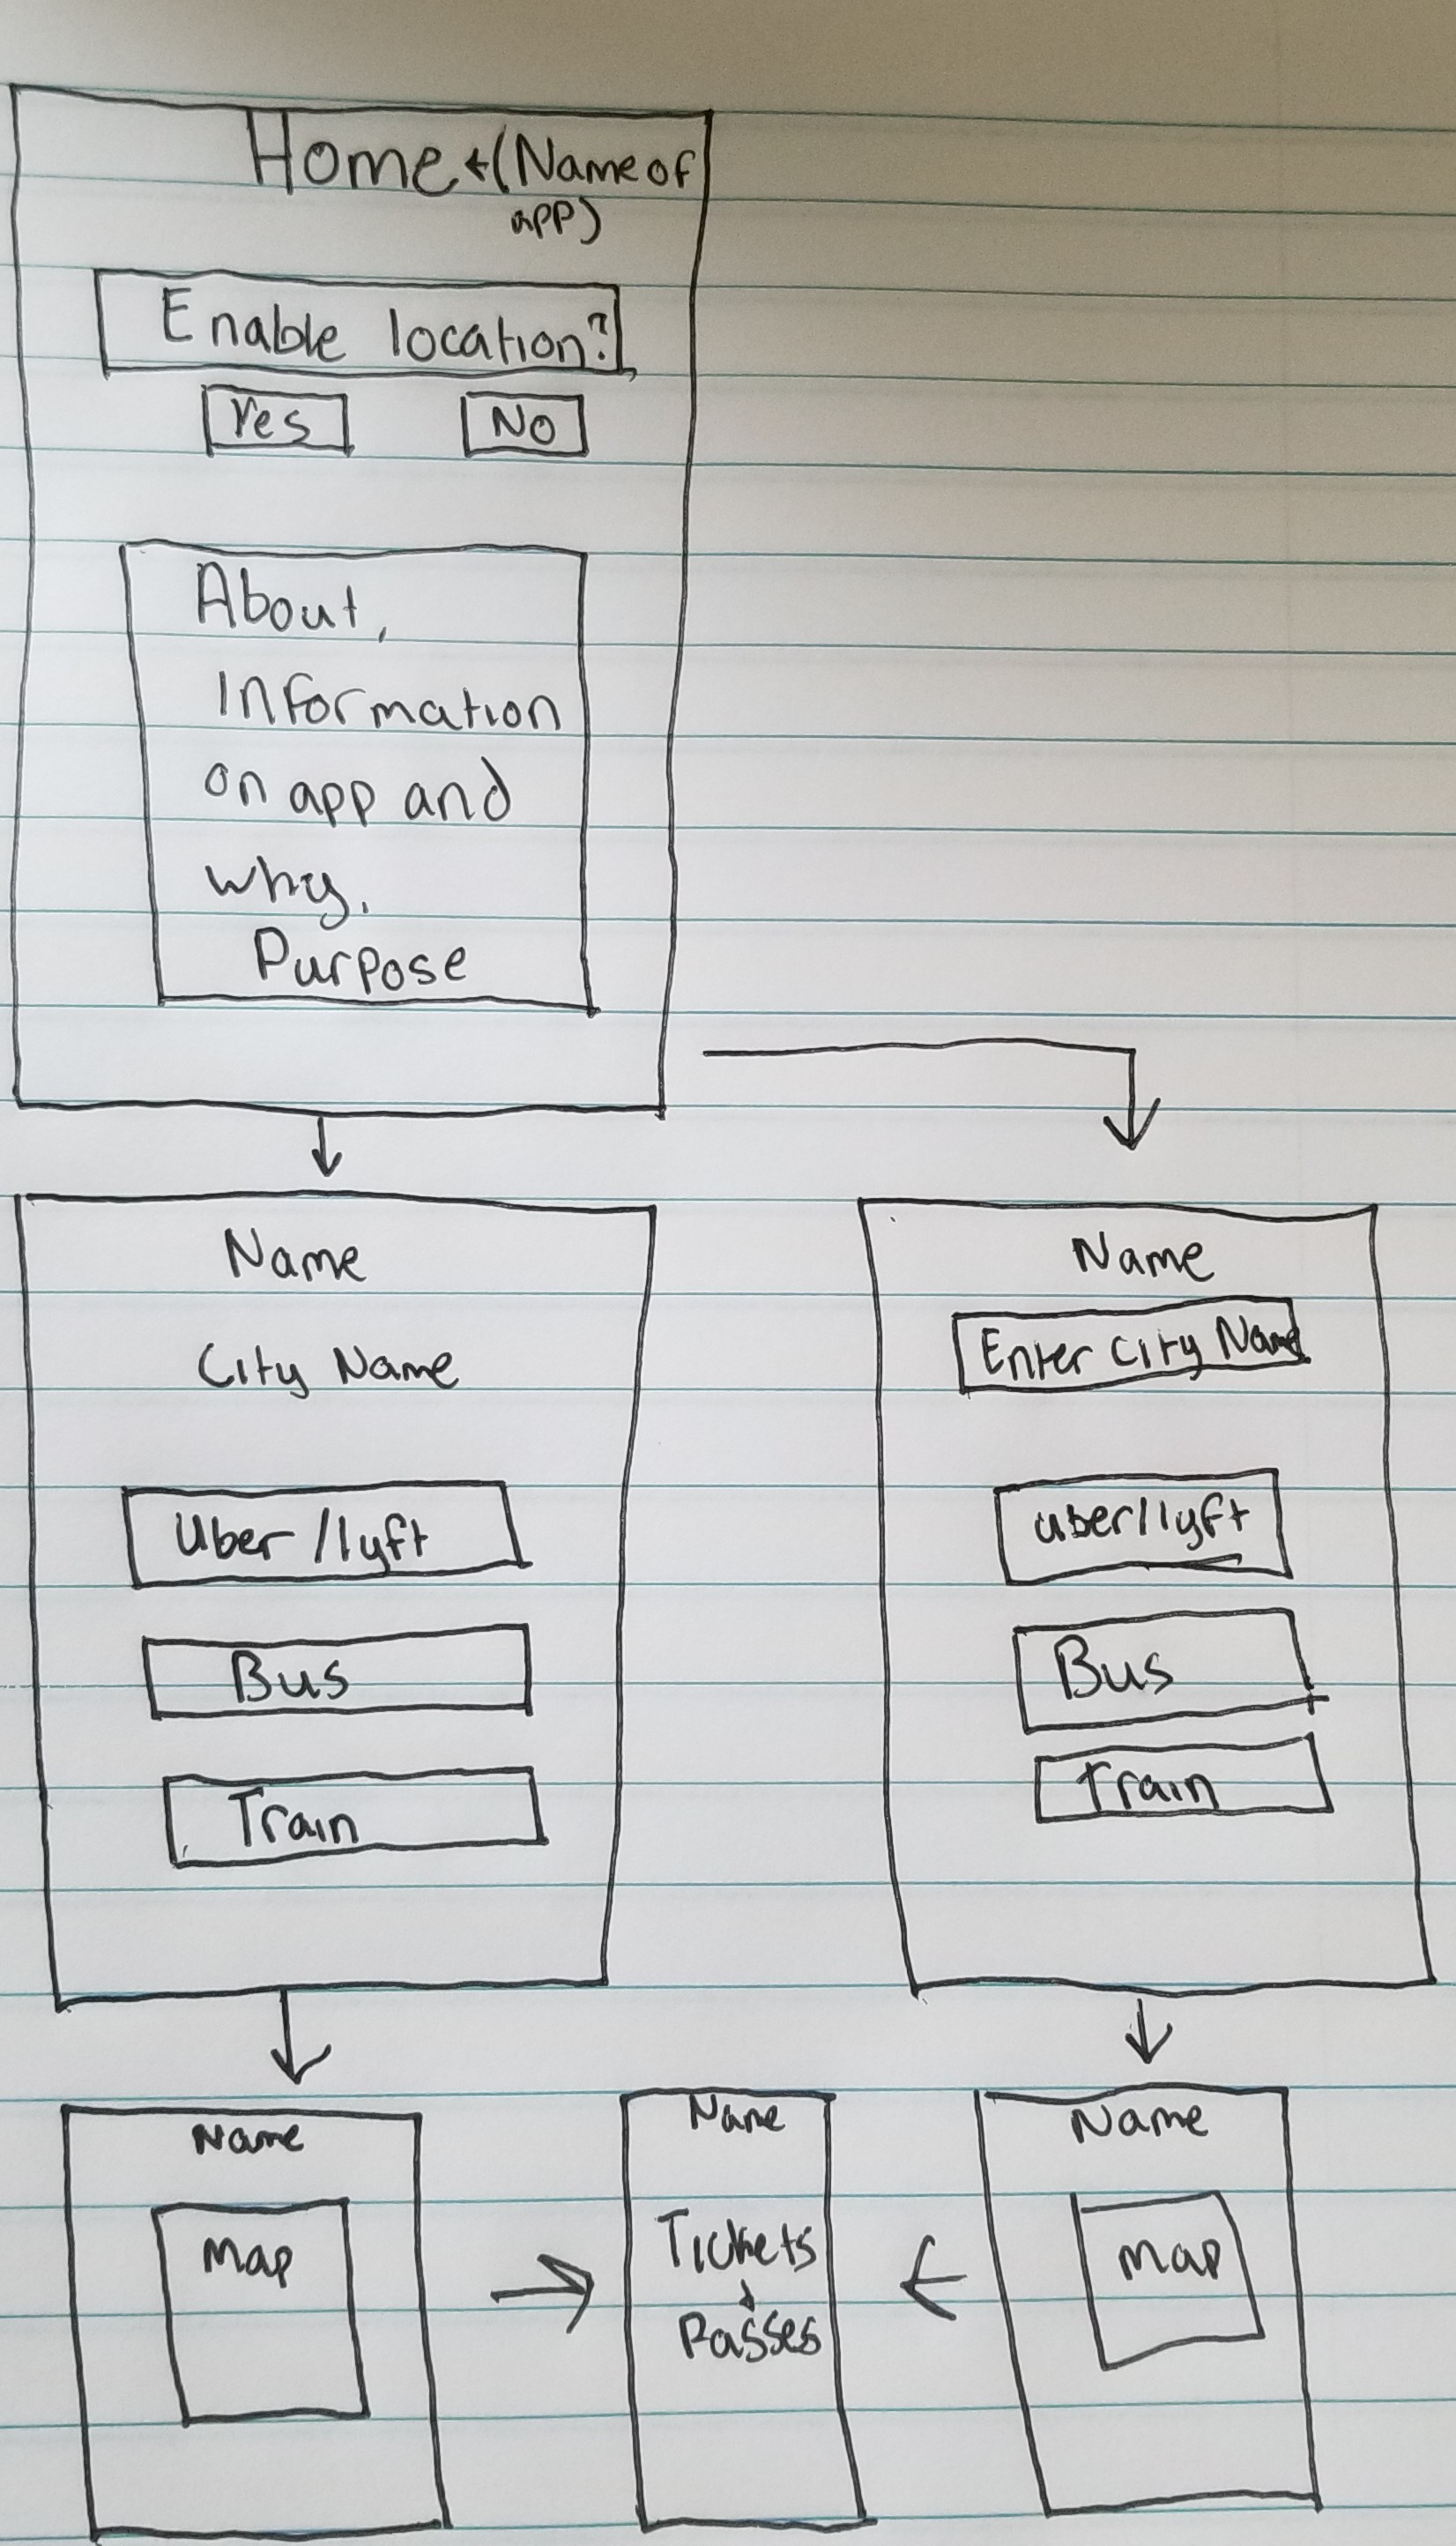 Home ←(Name of
app)
Enable location?
Yes No
About,
Information
on app and
why.
Purpose
Name
City Name
Uber/lyft
Bus
Train
Name
Enter City Name
uber/lyft
Bus
train
Name
Map
Name
Tickets
&
Passes
Name
Map